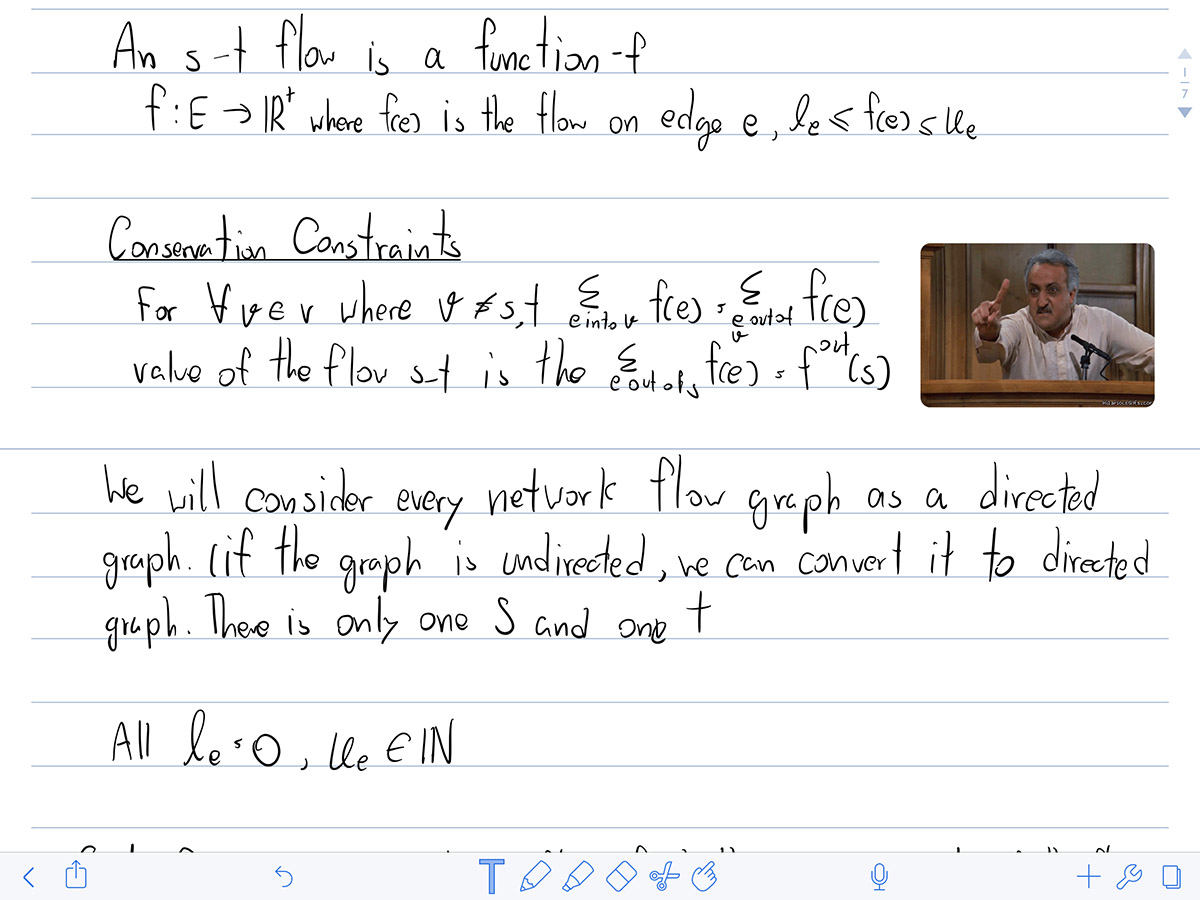 An s-t flow is a function -f
f: E → ℝ⁺ where f(e) is the flow on edge e, lₑ ≤ f(e) ≤ uₑ
1
7
Conservation Constraints
For ∀ v ∈ v where v ≠ s,t Σ e into v f(e) = Σ e out of v f(e)
value of the flow s-t is the Σ e out of s f(e) = f^out(s)
We will consider every network flow graph as a directed
graph. (if the graph is undirected, we can convert it to directed
graph. There is only one S and one t
All lₑ = 0, uₑ ∈ ℕ
T